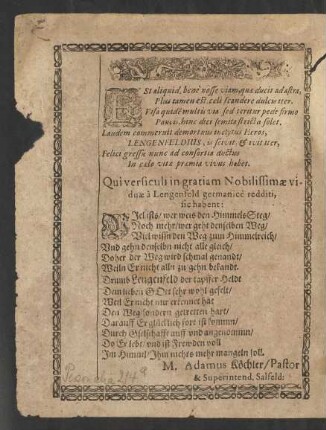 ESt aliquid, benè nosse viam quæ ducit ad astra,
Plus tamen est, cœli scandere dulcè iter.
Visa quidē multis via sed teritur pede firmo
Paucis. hunc aber semita stricta solet.
Laudem commeruit demortuus inclytus Heros,
LENGENFELDIUS, ut scivit, & ivit iter,
Felici gressu nunc ad consortia ductus
In cœlo vitæ præmia vivus habet.
Qui versiculi in gratiam Nobilissimæ vi-
duæ à Lengenfeld germanicè redditi,
sic habent:
VJel ists/ wer weis den Himmels Steg/
Noch mehr/ wer geht denselben Weg/
Viel wissn den Weg zum Himmelreich/
Und gehn denselbn nicht alle gleich/
Daher der Weg wird schmal genandt/
Weiln Er nicht alln zu gehn bekandt.
Drumb Lengenfeld der tapffer Heldt
Dem lieben GOtt sehr wohl gefelt/
Weil Er nicht nur erkennet hat
Den Weg sondern getretten hart/
Darauff Er glücklich fort ist kommn/
Durch Gselschafft auff und angenommn/
Do Er lebt/ und ist Frewden voll
Im Himml/ Ihm nichts mehr mangeln soll.
M. Adamus Köchler/ Pastor
& Superintend. Salfeld: